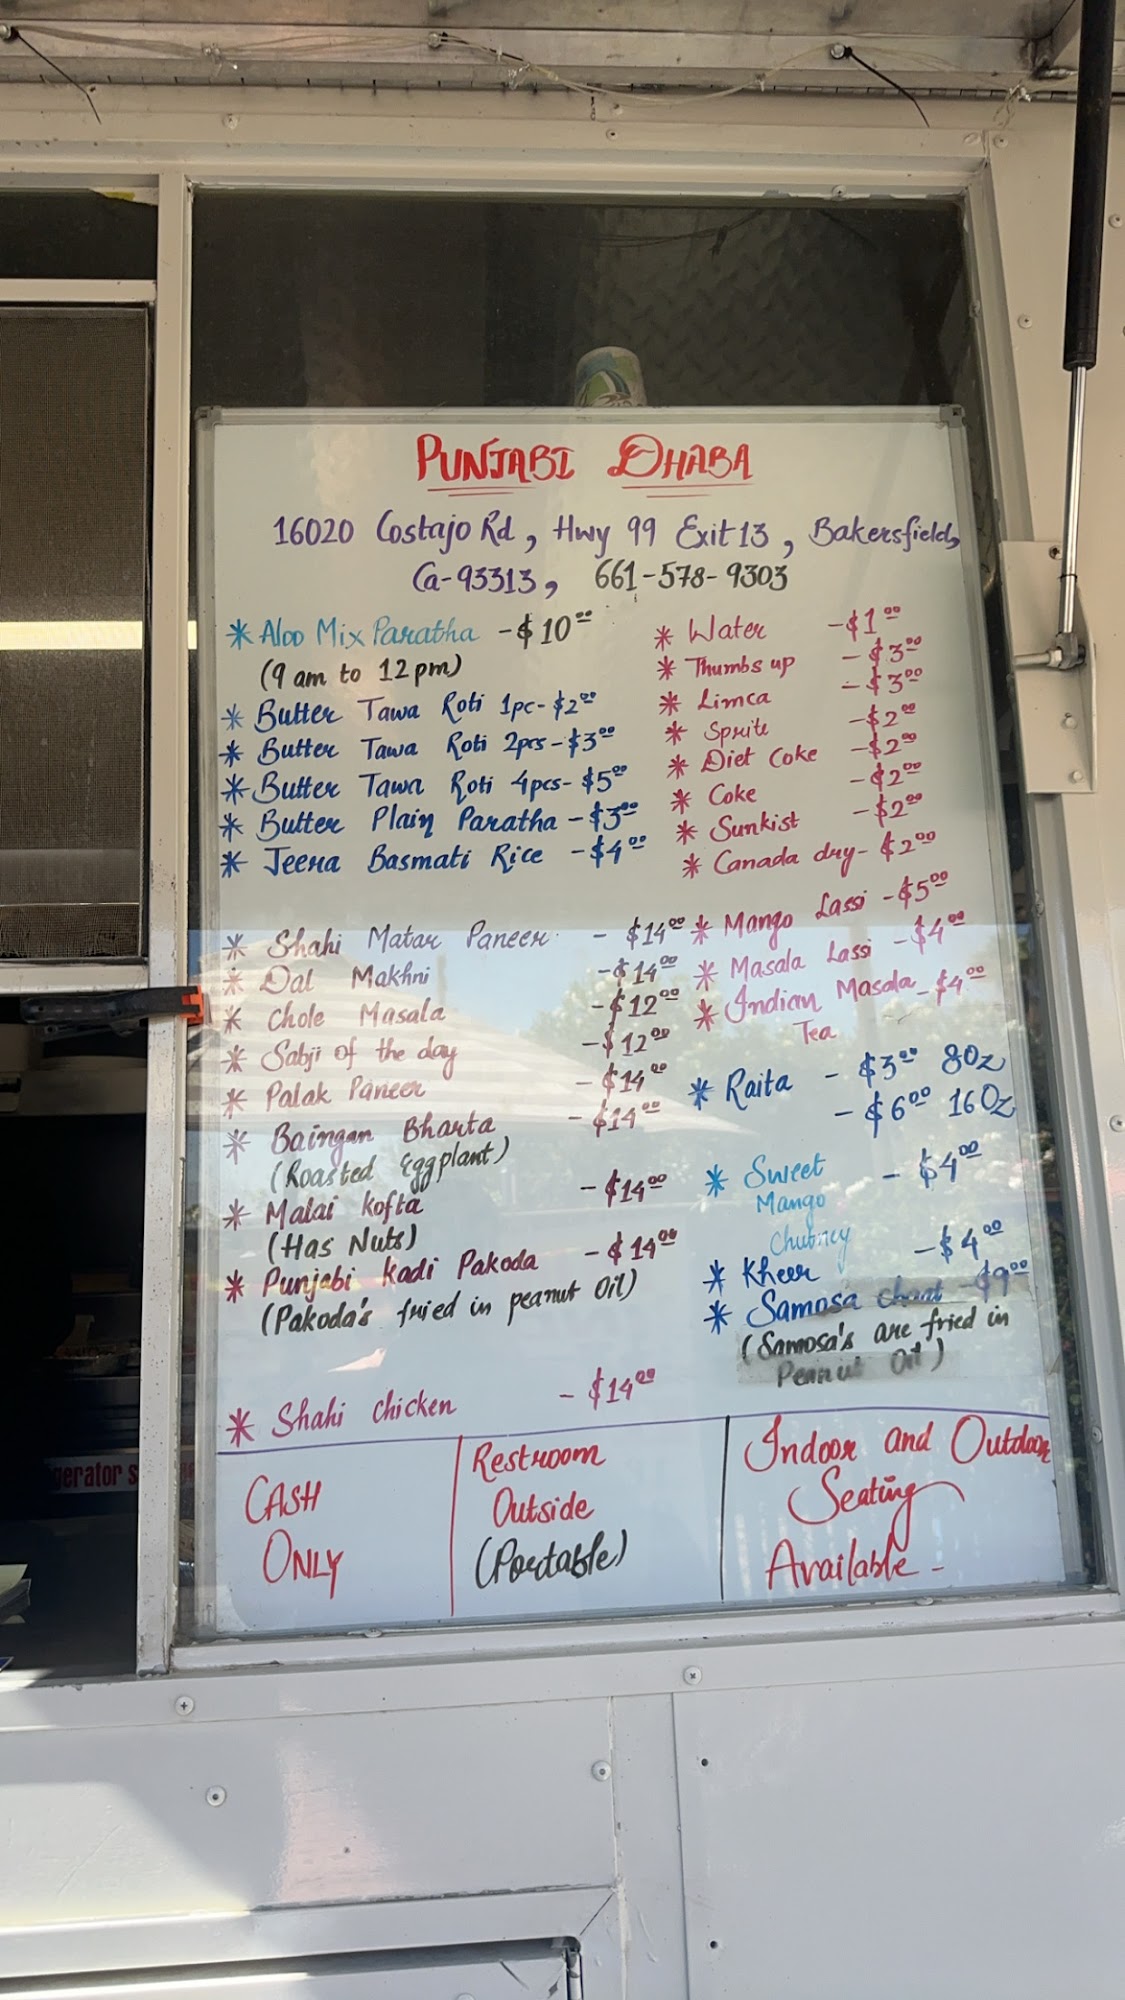 PUNJABI DHABA
16020 Costajo Rd, Hwy 99 Exit 13, Bakersfield,
Ca-93313, 661-578-9303
* Aloo Mix Paratha - $10.00
(9 am to 12 pm)
* Butter Tawa Roti 1pc - $2.00
* Butter Tawa Roti 2pcs - $3.00
* Butter Tawa Roti 4pcs - $5.00
* Butter Plain Paratha - $3.00
* Jeera Basmati Rice - $4.00
* Shahi Matar Paneer - $14.00
* Dal Makhni - $14.00
* Chole Masala - $12.00
* Sabji of the day - $12.00
* Palak Paneer - $14.00
* Baingan Bharta - $14.00
(Roasted Eggplant)
* Malai Kofta - $14.00
(Has Nuts)
* Punjabi Kadi Pakoda - $14.00
(Pakoda's fried in peanut Oil)
* Shahi chicken - $14.00
* Water - $1.00
* Thumbs up - $3.00
* Limca - $3.00
* Sprite - $2.00
* Diet Coke - $2.00
* Coke - $2.00
* Sunkist - $2.00
* Canada dry - $2.00
* Mango Lassi - $5.00
* Masala Lassi - $4.00
* Indian Masala - $4.00
Tea
* Raita - $3.00 8Oz
- $6.00 16Oz
* Sweet - $4.00
Mango
Chutney
* Kheer - $4.00
* Samosa chaat - $9.00
(Samosa's are fried in
Peanut Oil)
CASH
ONLY
Restroom
Outside
(Portable)
Indoor and Outdoor
Seating
Available -